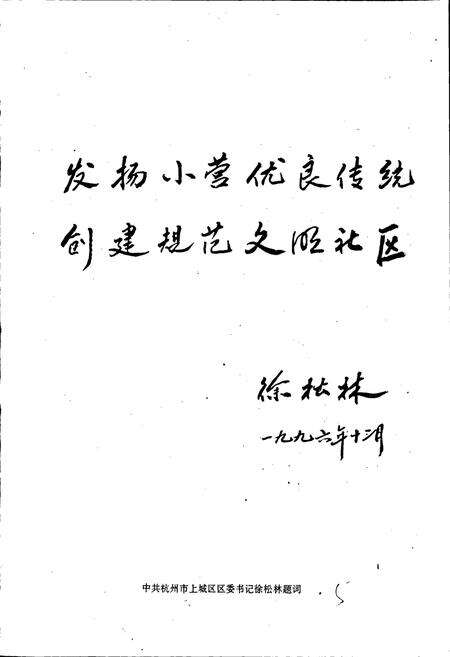 发扬小营优良传统
创建规范文明社区
徐松林
一九九六年十二月
中共杭州市上城区区委书记徐松林题词